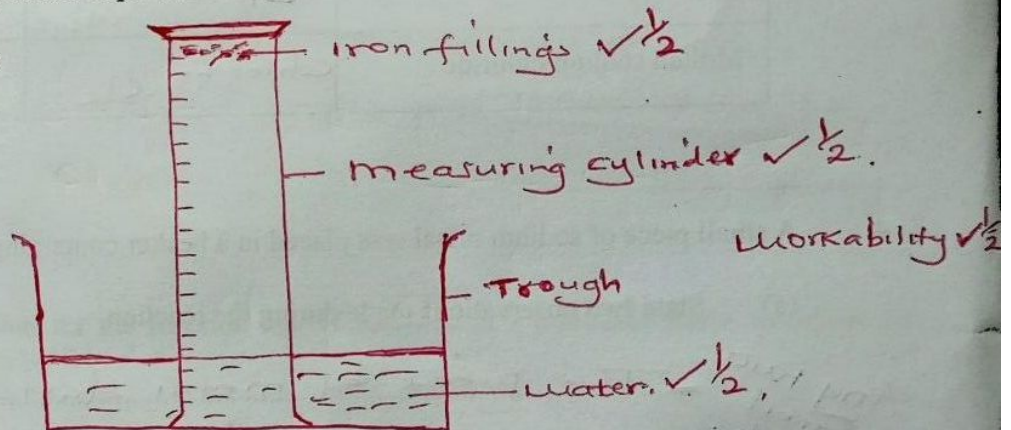 Iron fillings ✓½
measuring cylinder ✓½.
workability ✓½
Trough
water. ✓½,